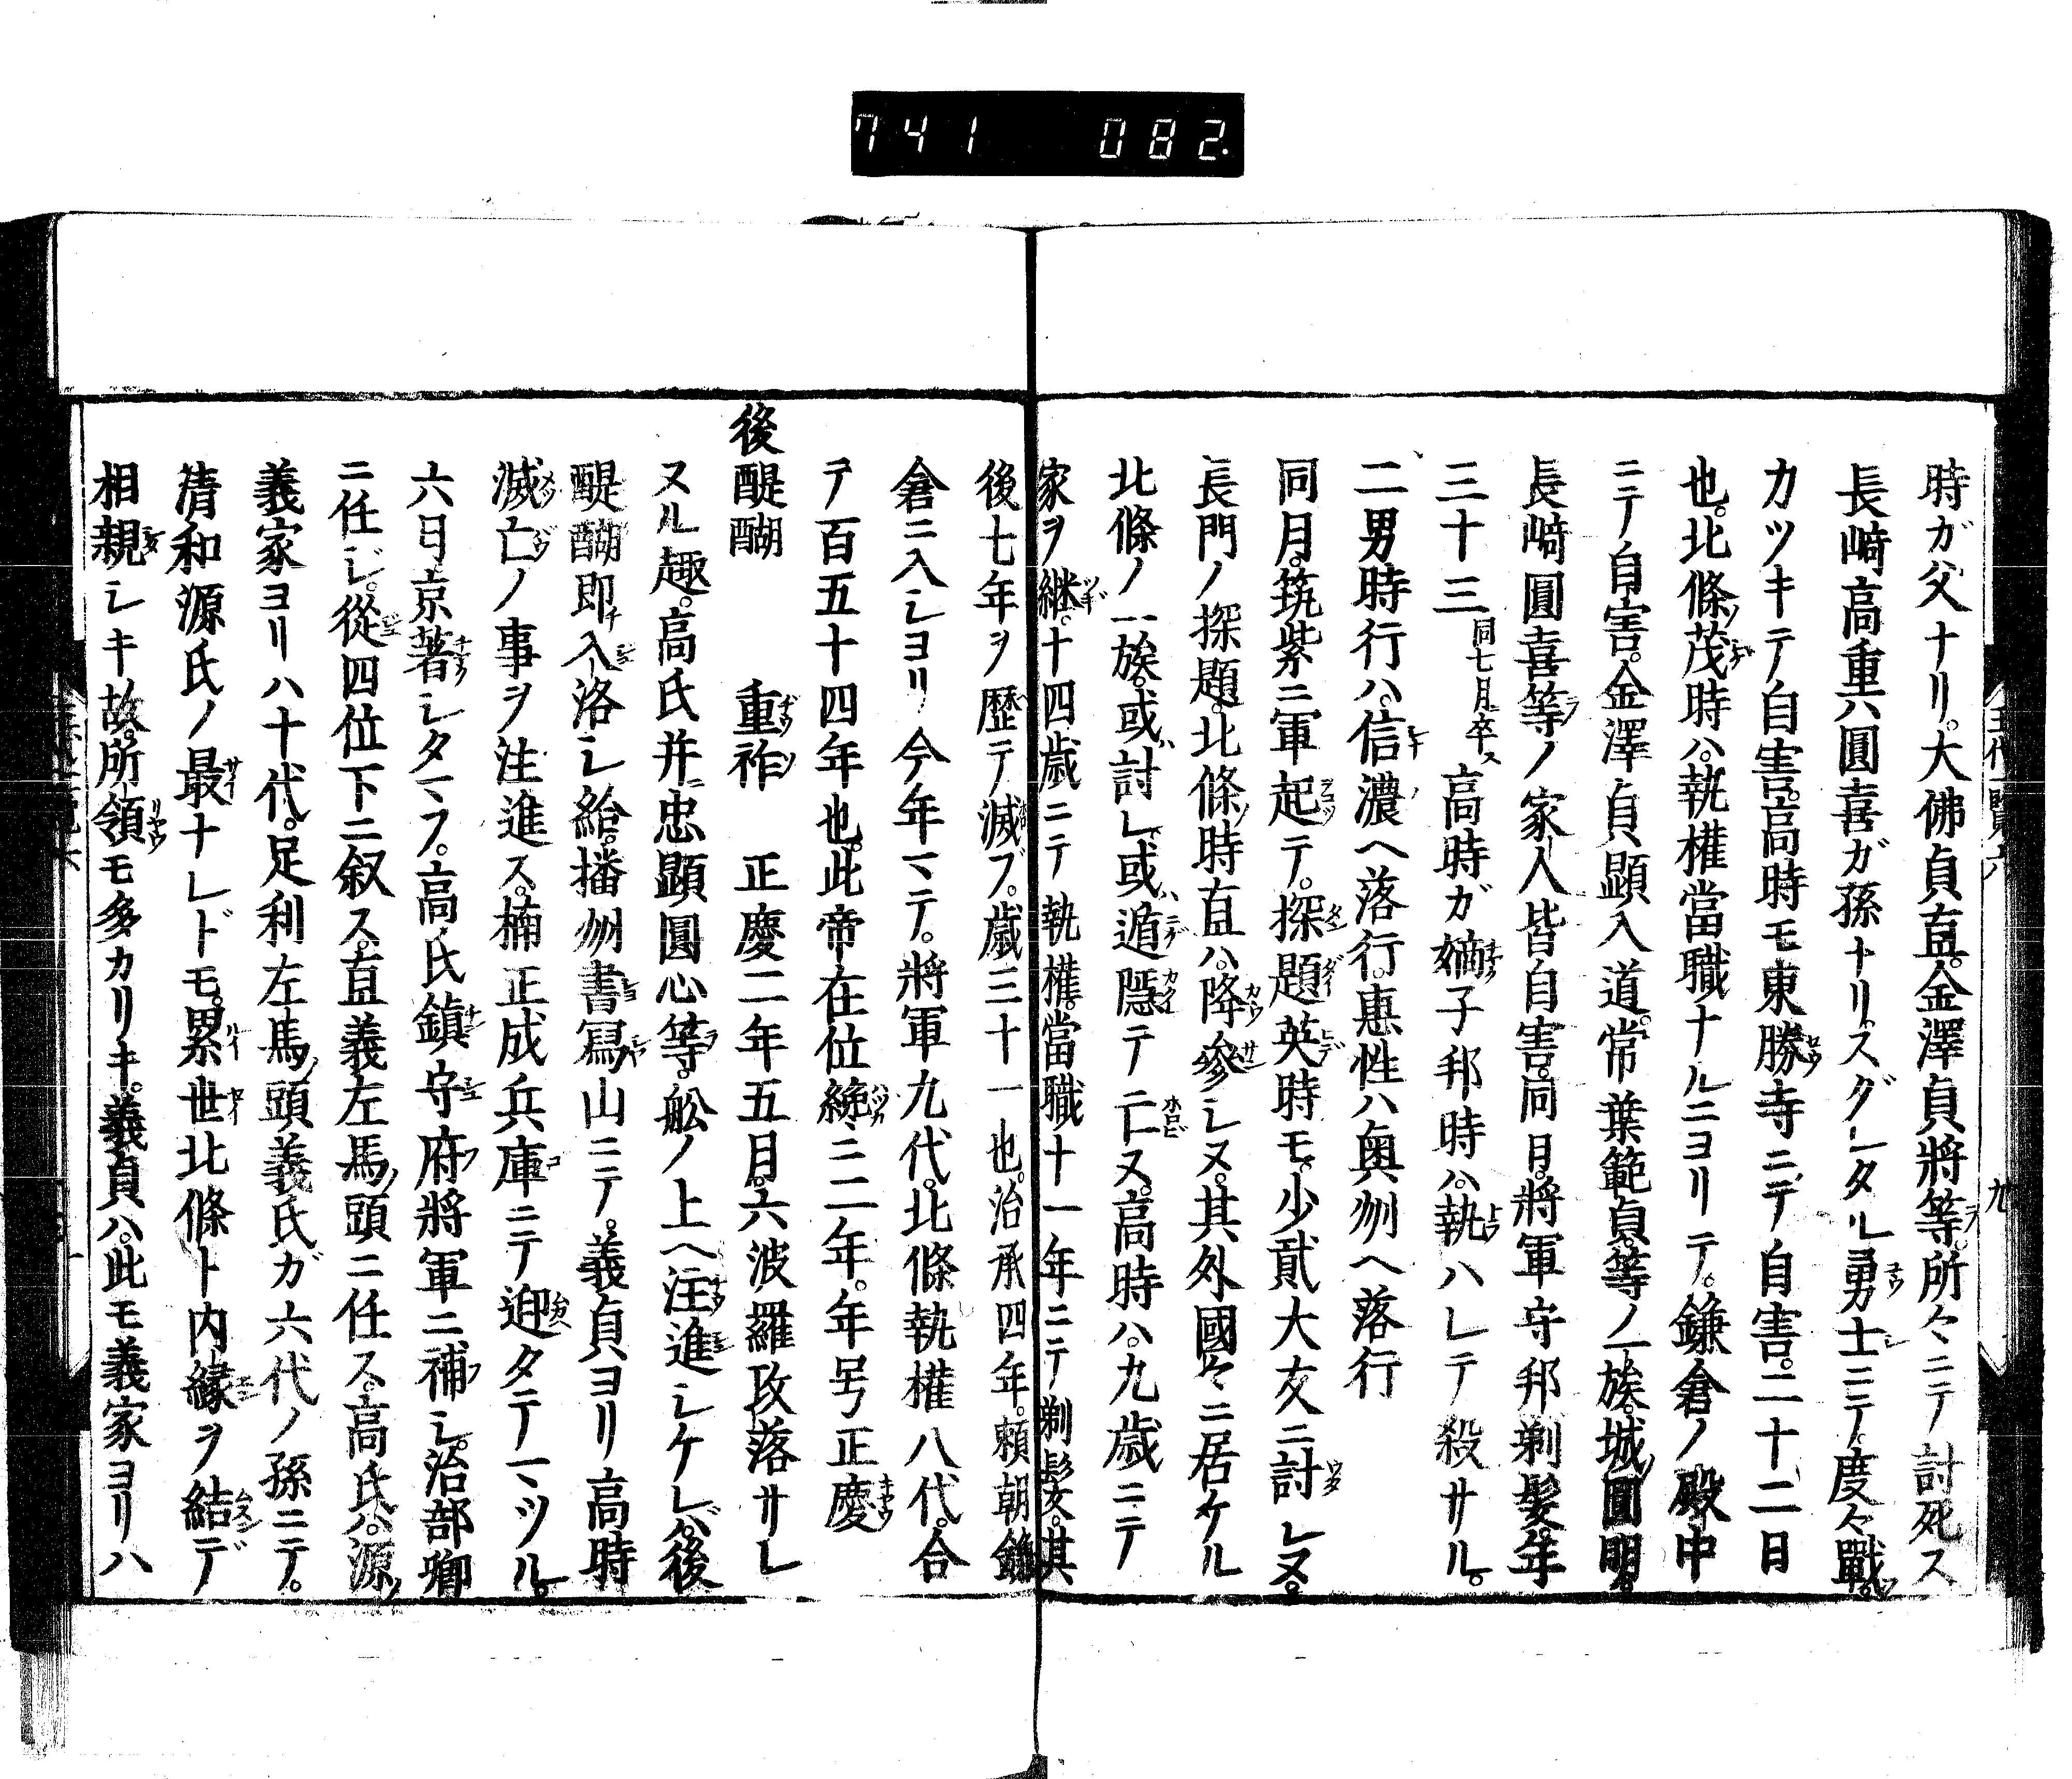 741 082.
時ガ父ナリ。大佛貞直。金澤貞將等。所々ニテ討死ス
長﨑高重ハ圓喜ガ孫ナリ。スグレタル勇士ニテ。度々戰。
カツキテ自害。高時モ東勝寺ニテ自害。二十二日
也。北條茂時ハ。執權當職ナルニヨリテ。鎌倉ノ殿中
ニテ自害。金澤貞顯入道。常葉範貞等ノ一族。城圓明。
長﨑圓喜等ノ家人皆自害。同日。將軍守邦剃髮。年
三十三同七月卒ス高時ガ嫡子邦時ハ。執ハレテ殺サル。
二男時行ハ。信濃ヘ落行。惠性ハ奧州ヘ落行
同月。筑紫ニ軍起テ。探題英時モ。少貳大友ニ討レヌ。
長門ノ探題。北條時直ハ。降參シヌ。其外國々ニ居ケル
北條ノ一族。或ハ討レ。或ハ遁隱テ亡ヌ。高時ハ。九歲ニテ
家ヲ継。十四歲ニテ執權。當職十一年ニテ剃髮。其
後七年ヲ歷テ滅ブ。歲三十一也。治承四年。賴朝鎌
倉ニ入シヨリ今年マテ。將軍九代。北條執權八代。合
テ百五十四年也。此帝在位纔ニ二年。年号正慶
後醍醐 重祚 正慶二年五月。六波羅攻落サレ
ヌル趣。高氏并忠顯圓心等。舩ノ上ヘ注進シケレバ。後
醍醐即入洛シ給。播州書寫山ニテ。義貞ヨリ高時
滅亡ノ事ヲ注進ス。楠正成兵庫ニテ迎タテマツル。
六日京著シタマフ。高氏鎮守府將軍ニ補シ。治部卿
ニ任ジ。從四位下ニ叙ス。直義左馬頭ニ任ス。高氏ハ。源
義家ヨリハ十代。足利左馬頭義氏ガ六代ノ孫ニテ。
清和源氏ノ最ナレドモ。累世北條ト内縁ヲ結デ
相親シキ故。所領モ多カリキ。義貞ハ。此モ義家ヨリハ